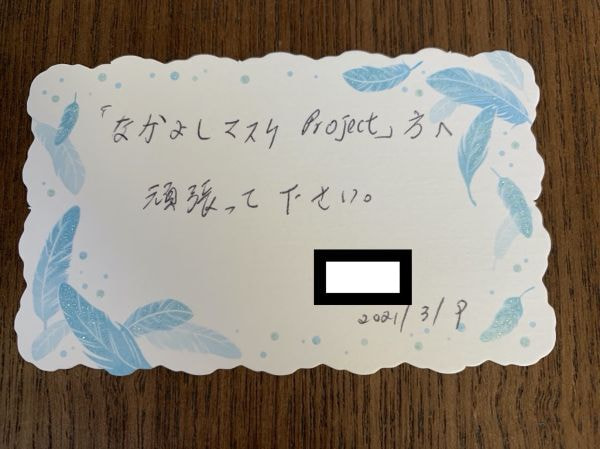 「なかよしマスク Project」方へ
頑張って下さい。
2021/3/9